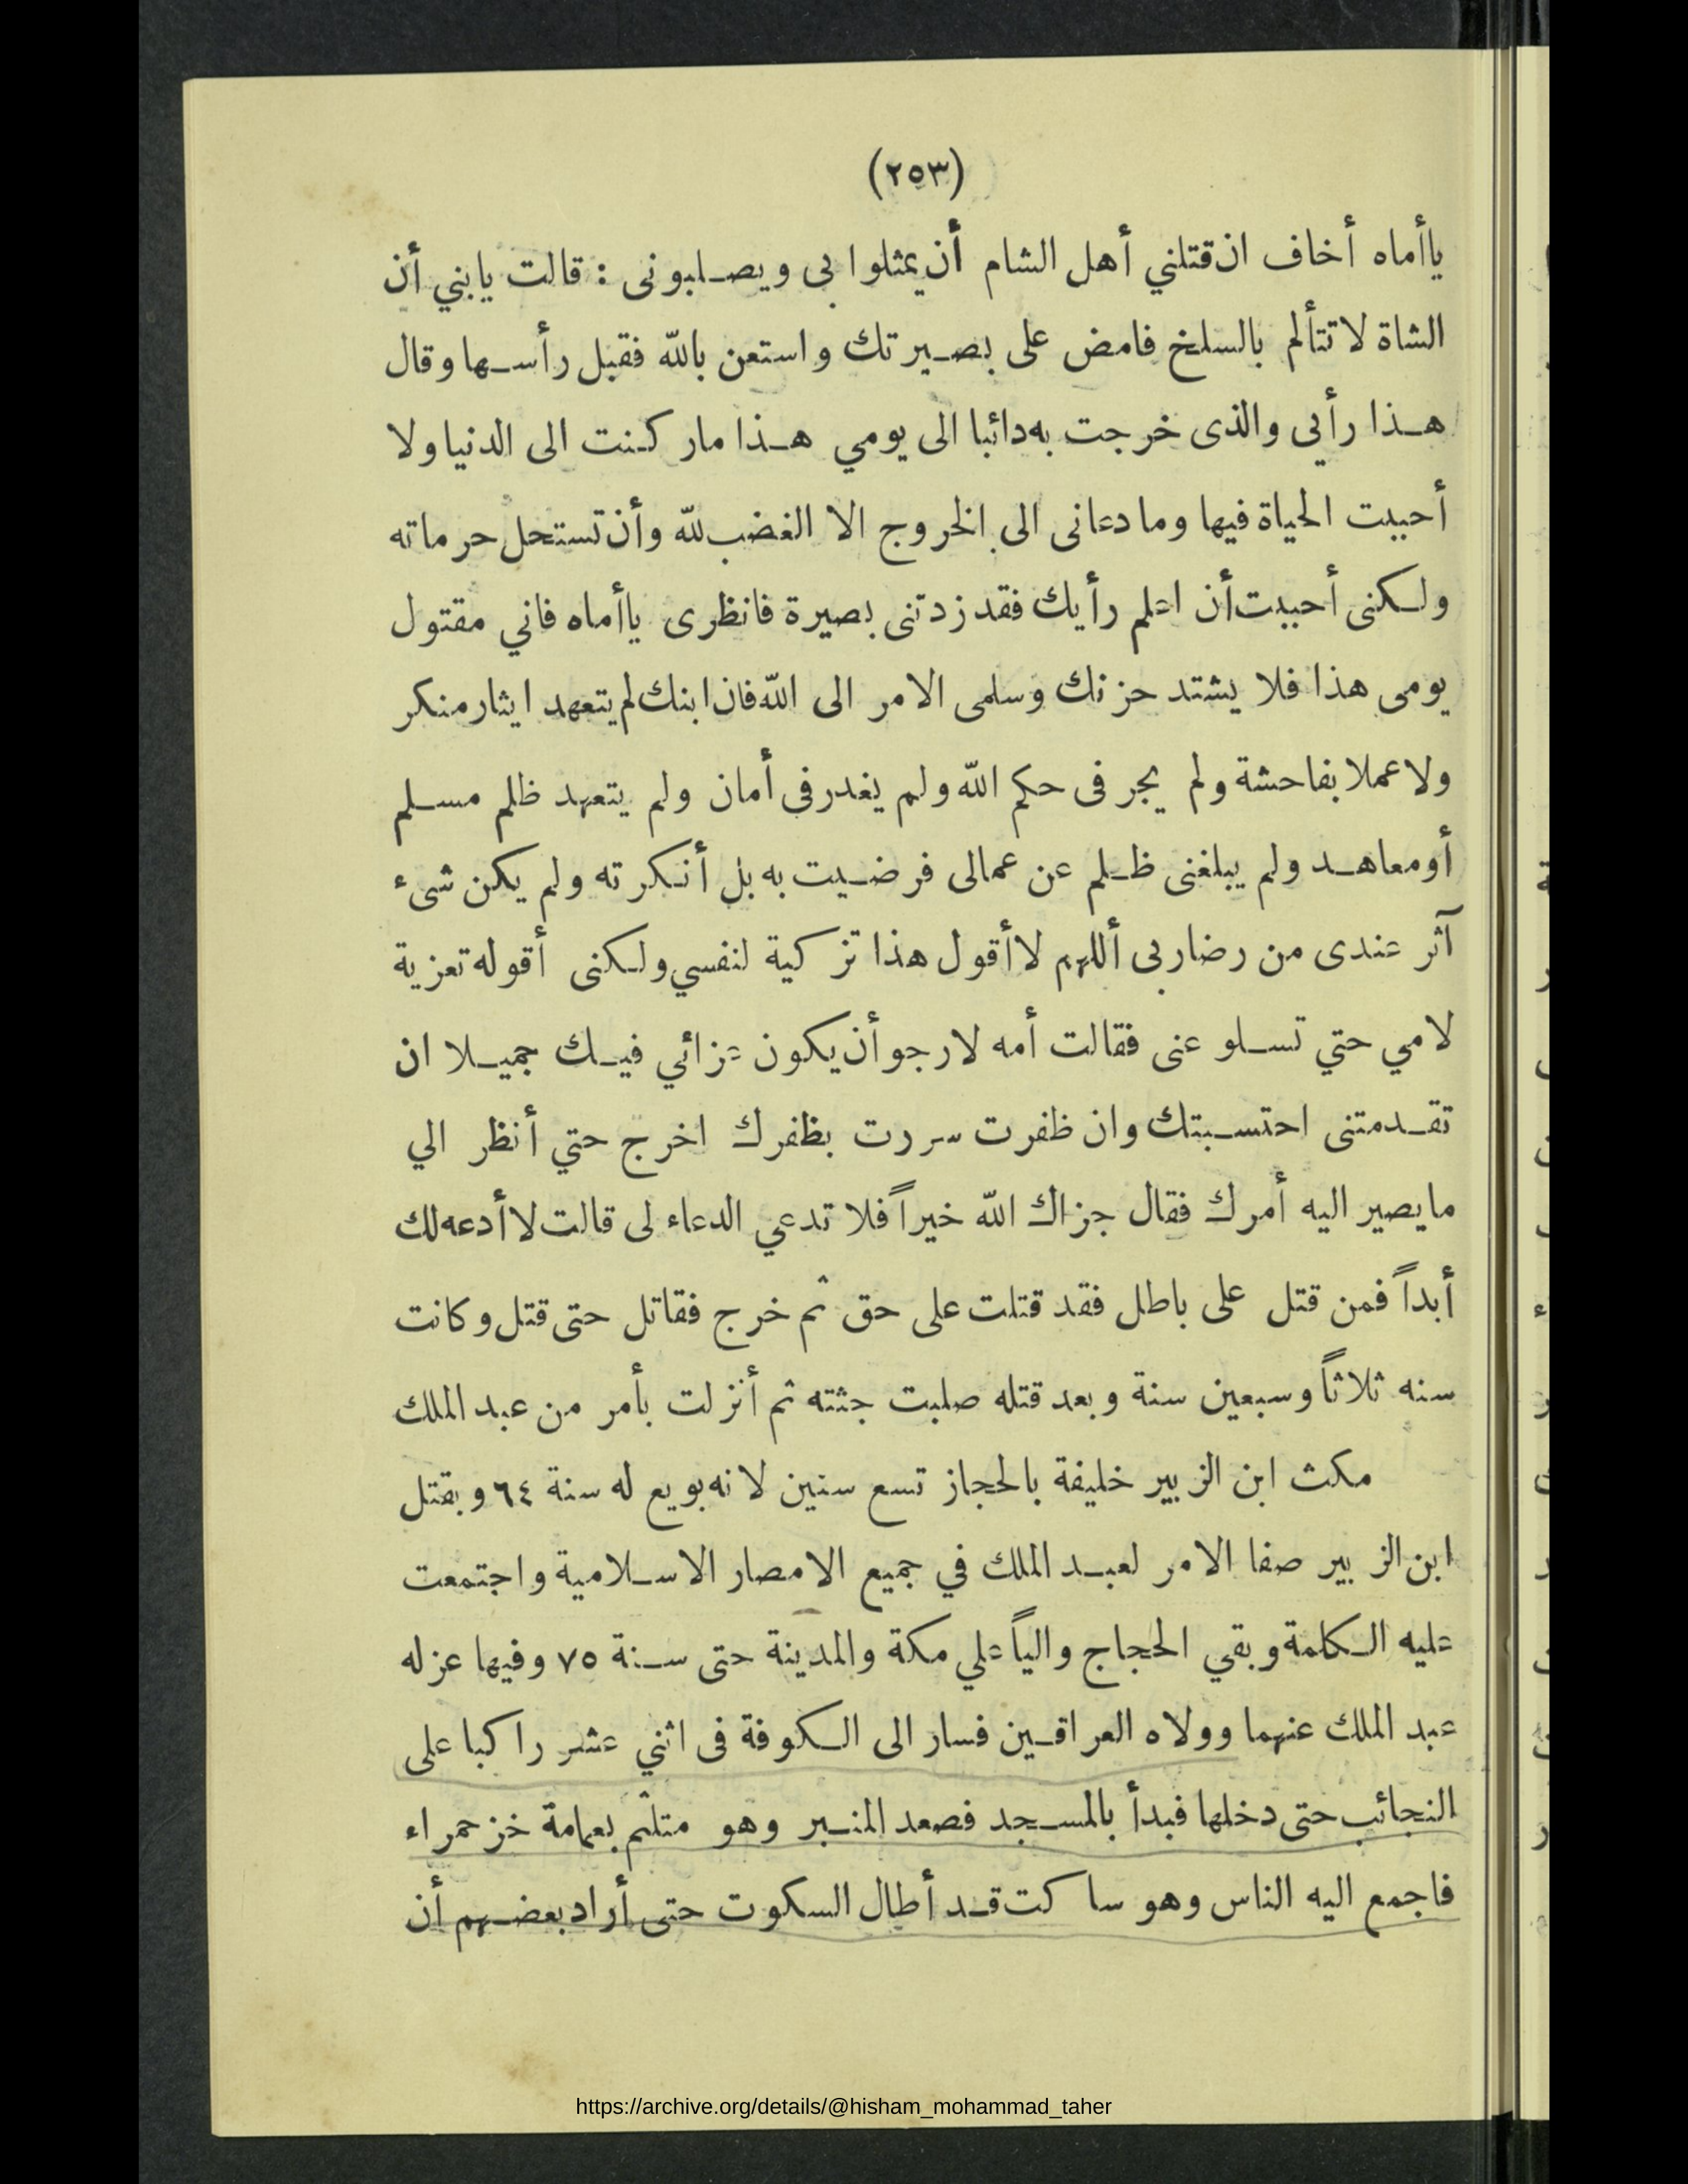 (٢٥٣)
ياأماه أخاف ان قتلني أهل الشام أن يمثلوا بى ويصلبونى : قالت يابني أن
الشاة لا تتألم بالسلخ فامض على بصيرتك واستعن بالله فقبل رأسها وقال
هذا رأيي والذى خرجت به دائبا الى يومي هذا ماركنت الى الدنيا ولا
أحببت الحياة فيها وما دعانى الى الخروج الا الغضب لله وأن تستحل حرماته
ولكنى أحببت أن اعلم رأيك فقد زدتنى بصيرة فانظرى ياأماه فاني مقتول
يومى هذا فلا يشتد حزنك وسلمى الامر الى الله فان ابنك لم يتعهد ايثار منكر
ولا عملا بفاحشة ولم يجر فى حكم الله ولم يغدر فى أمان ولم يتعهد ظلم مسلم
أو معاهد ولم يبلغنى ظلم عن عمالى فرضيت به بل أنكرته ولم يكن شىء
آثر عندى من رضا ربى أللهم لا أقول هذا تزكية لنفسي ولكنى أقوله تعزية
لامي حتي تسلو عنى فقالت أمه لارجو أن يكون عزائي فيك جميلا ان
تقدمتنى احتسبتك وان ظفرت سررت بظفرك اخرج حتي أنظر الي
مايصير اليه أمرك فقال جزاك الله خيراً فلا تدعي الدعاء لى قالت لا أدعه لك
أبداً فمن قتل على باطل فقد قتلت على حق ثم خرج فقاتل حتى قتل وكانت
سنه ثلاثاً وسبعين سنة وبعد قتله صلبت جثته ثم أنزلت بأمر من عبد الملك
مكث ابن الزبير خليفة بالحجاز تسع سنين لانه بويع له سنة ٦٤ وبقتل
ابن الزبير صفا الامر لعبد الملك في جميع الامصار الاسلامية واجتمعت
عليه الكلمة وبقي الحجاج والياً علي مكة والمدينة حتى سنة ٧٥ وفيها عزله
عبد الملك عنهما وولاه العراقين فسار الى الكوفة فى اثني عشر راكبا على
النجائب حتى دخلها فبدأ بالمسجد فصعد المنبر وهو متلثم بعمامة خز حمراء
فاجمع اليه الناس وهو ساكت قد أطال السكوت حتى أراد بعضهم أن
https://archive.org/details/@hisham_mohammad_taher